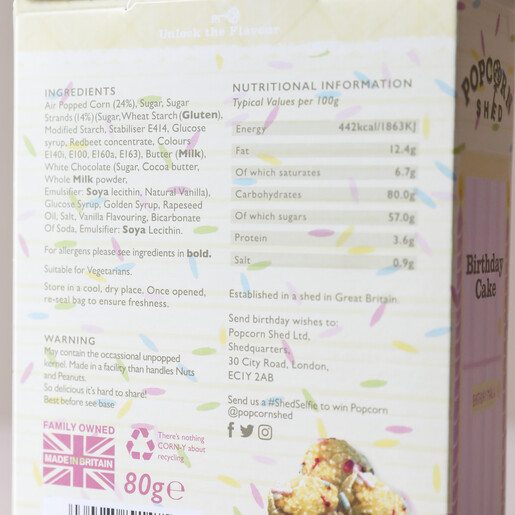 Unlock the Flavour
INGREDIENTS
Air Popped Corn (24%), Sugar, Sugar
Strands (14%)(Sugar, Wheat Starch (Gluten),
Modified Starch, Stabiliser E414, Glucose
syrup, Redbeet concentrate, Colours
E140i, E100, E160a, E163), Butter (Milk),
White Chocolate (Sugar, Cocoa butter,
Whole Milk powder,
Emulsifier: Soya lecithin, Natural Vanilla),
Glucose Syrup, Golden Syrup, Rapeseed
Oil, Salt, Vanilla Flavouring, Bicarbonate
Of Soda, Emulsifier: Soya Lecithin.
For allergens please see ingredients in bold.
Suitable for Vegetarians.
Store in a cool, dry place. Once opened,
re-seal bag to ensure freshness.
WARNING
May contain the occassional unpopped
kernel. Made in a facility than handles Nuts
and Peanuts.
So delicious it's hard to share!
Best before see base
FAMILY OWNED
MADE IN BRITAIN
There's nothing
CORN-Y about
recycling
80g℮
NUTRITIONAL INFORMATION
Typical Values per 100g
Energy 442kcal/1863KJ
Fat 12.4g
Of which saturates 6.7g
Carbohydrates 80.0g
Of which sugars 57.0g
Protein 3.6g
Salt 0.9g
Established in a shed in Great Britain.
Send birthday wishes to:
Popcorn Shed Ltd,
Shedquarters,
30 City Road, London,
EC1Y 2AB
Send us a #ShedSelfie to win Popcorn
@popcornshed
POPCORN
SHED
Birthday
Cake